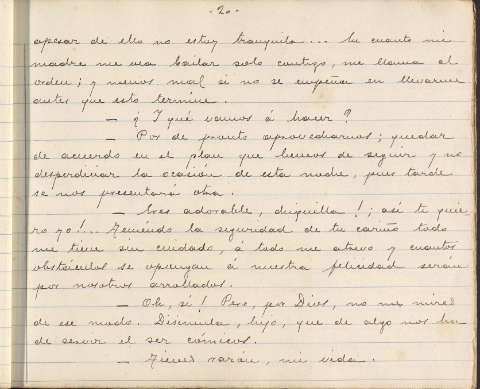 - 20 -
apesar de ello no estoy tranquila... En cuanto mi
madre me vea bailar solo contigo, me llama al
orden; y menos mal si no se empeña en llevarme
antes que esto termine.
— ¿Y qué vamos á hacer?
— Por de pronto aprovecharnos; quedar
de acuerdo en el plan que hemos de seguir y no
desperdiciar la ocasión de esta noche, pues tarde
se nos presentará otra.
— Eres adorable, chiquilla!; así te quie-
ro yo!... Teniendo la seguridad de tu cariño todo
me tiene sin cuidado, á todo me atrevo y cuantos
obstáculos se opongan á nuestra felicidad serán
por nosotros arrollados.
— Oh, sí! Pero, por Dios, no me mires
de ese modo. Disimula, hijo, que de algo nos ha
de servir el ser cómicos.
— Tienes razón, mi vida.